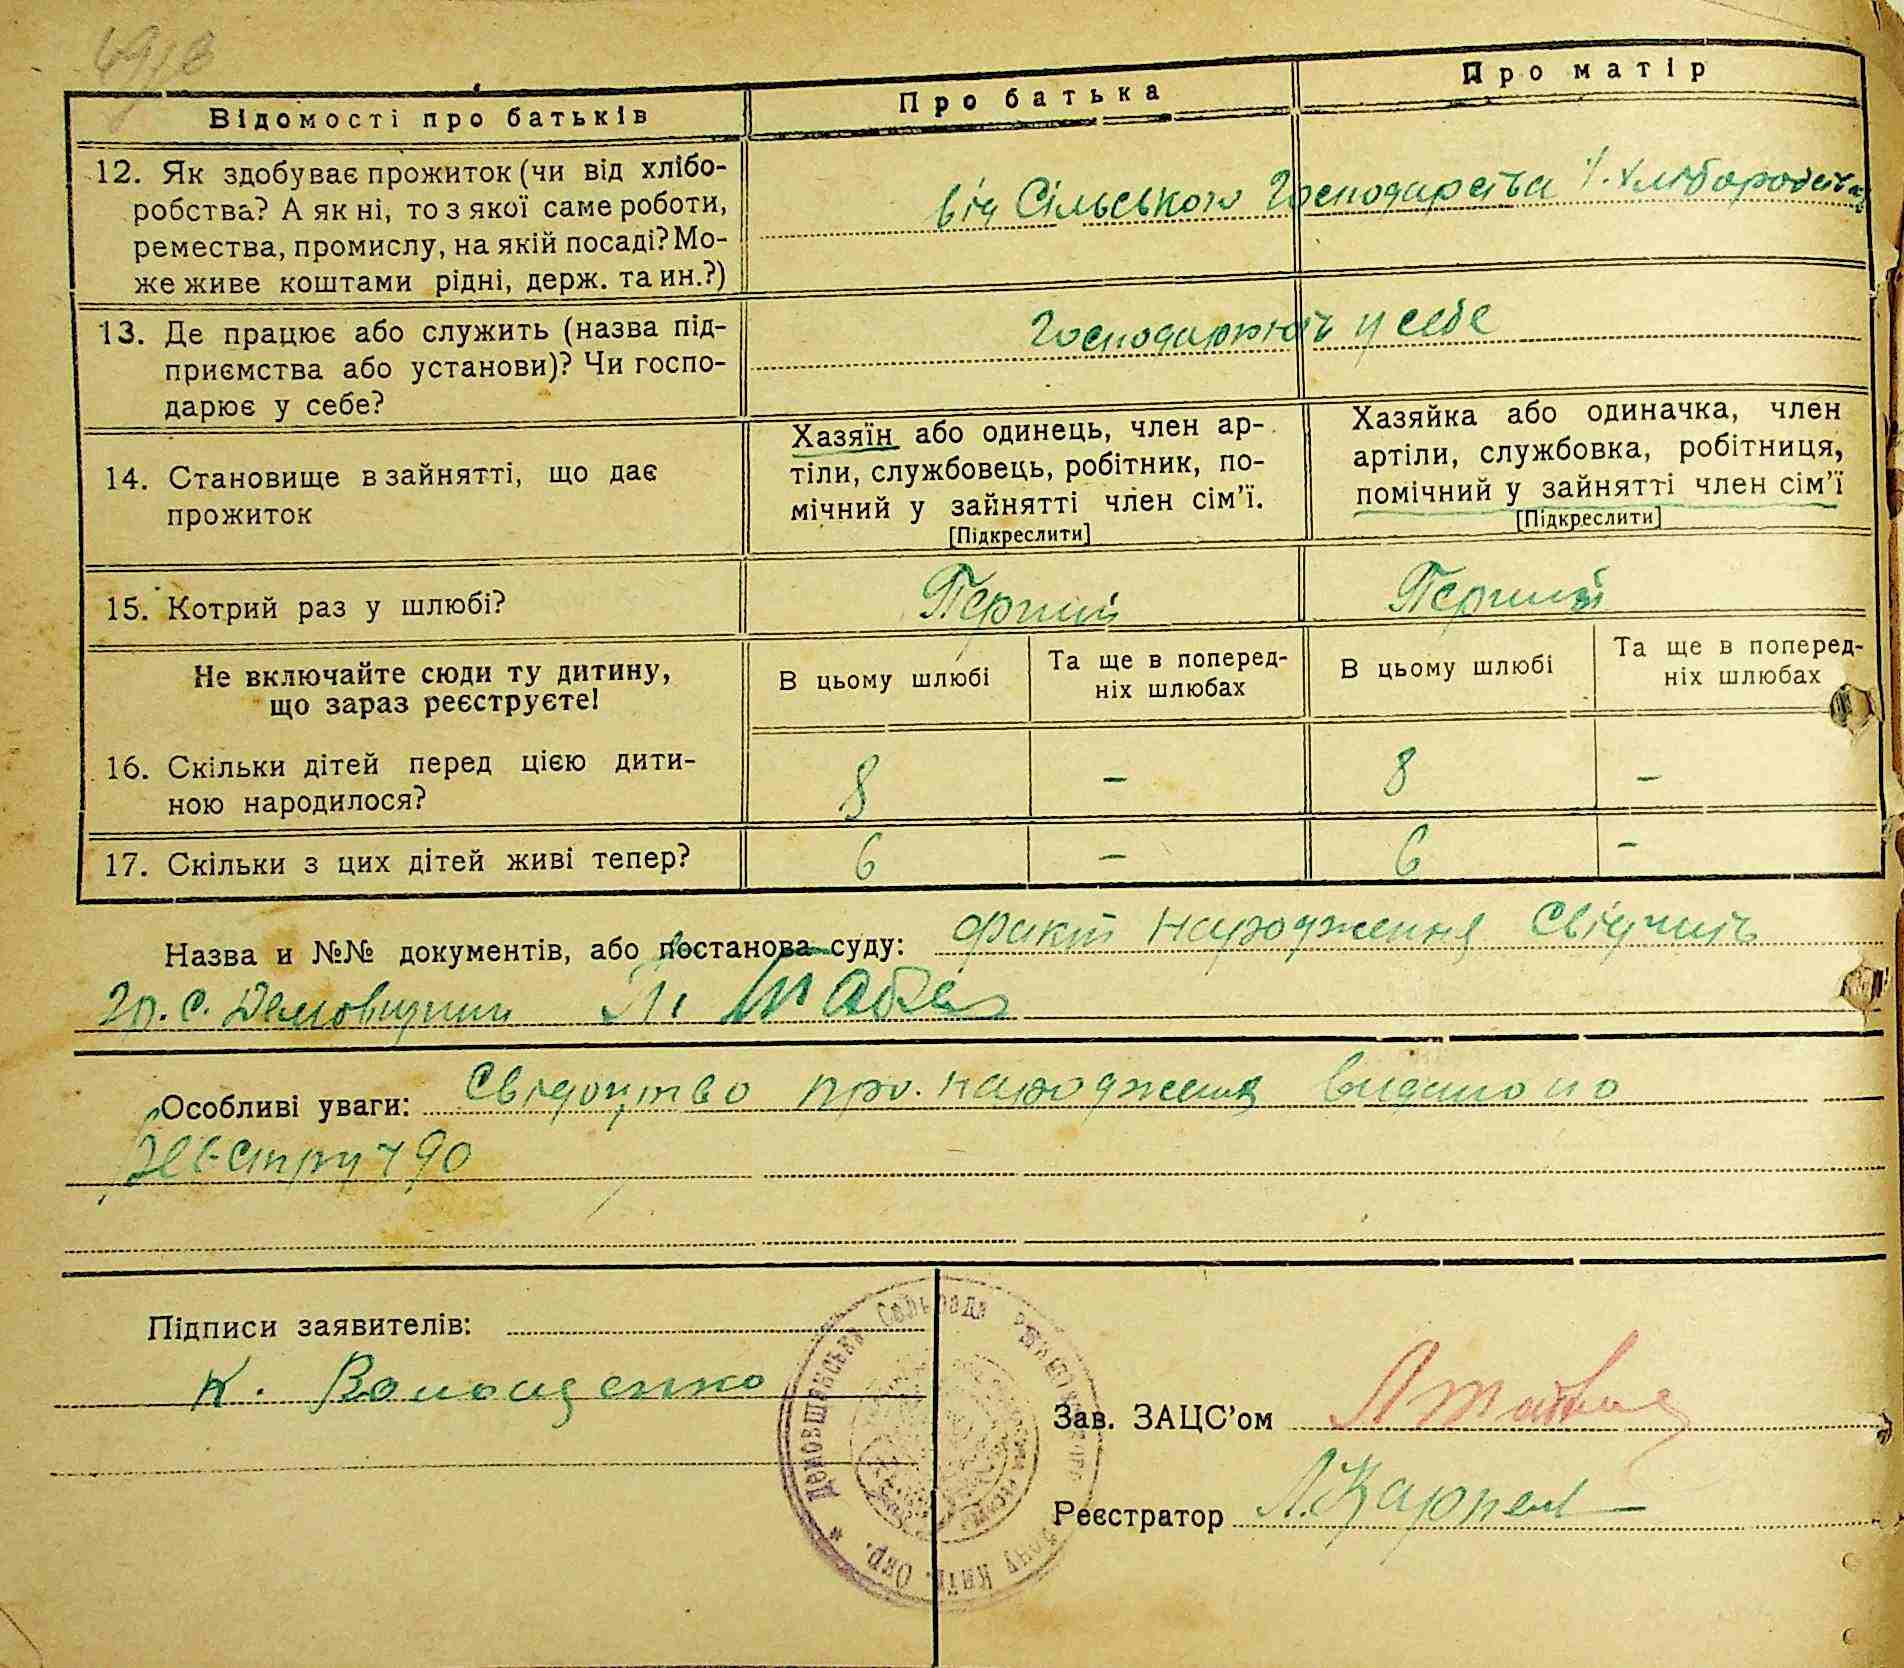 Відомості про батьків
Про батька
Про матір
12. Як здобуває прожиток (чи від хлібо-
робства? А як ні, то з якої саме роботи,
ремества, промислу, на якій посаді? Мо-
же живе коштами рідні, держ. та ин.?)
від Сільського Господарства
13. Де працює або служить (назва під-
приємства або установи)? Чи госпо-
дарює у себе?
Господарюють у себе
14. Становище в зайнятті, що дає
прожиток
Хазяїн або одинець, член ар-
тіли, службовець, робітник, по-
мічний у зайнятті член сім’ї.
[Підкреслити]
Хазяйка або одиначка, член
артіли, службовка, робітниця,
помічний у зайнятті член сім’ї
[Підкреслити]
15. Котрий раз у шлюбі?
Перший
Перший
Не включайте сюди ту дитину,
що зараз реєструєте!
В цьому шлюбі
Та ще в поперед-
ніх шлюбах
В цьому шлюбі
Та ще в поперед-
ніх шлюбах
16. Скільки дітей перед цією дити-
ною народилося?
8 – 8 –
17. Скільки з цих дітей живі тепер?
6 – 6 –
Назва и №№ документів, або постанова суду: факт народження Свідчить
гр. с. Демовщини
Особливі уваги: Свідоцтво про народження видано по
90
Підписи заявителів:
К. Волощенко
Зав. ЗАЦС’ом
Реєстратор
Демовщанська Сільрада
Київ. Окр.